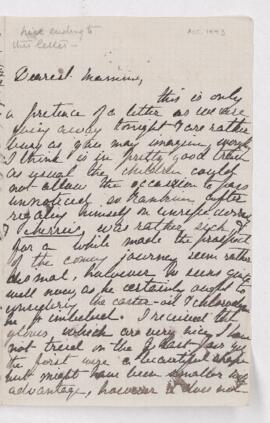 nice ending to
this letter —
Dearest Mamma,
this is only
a pretence of a letter as we are
going away tonight & are rather
busy as you may imagine, work
I think is in pretty good train
as usual the children could
not allow the occasion to pass
unnoticed, so after
regaling himself on unripe
cherries was rather sick &
for a while made the prospect
of the coming journey seem rather
dismal, however he seems quite
well now, as he certainly ought to
considering the castor-oil &
he imbibed. I received the
gloves which are very nice I have
not tried on the last pair yet
the first were a beautiful shape
but might have been smaller with
advantage, however it does not